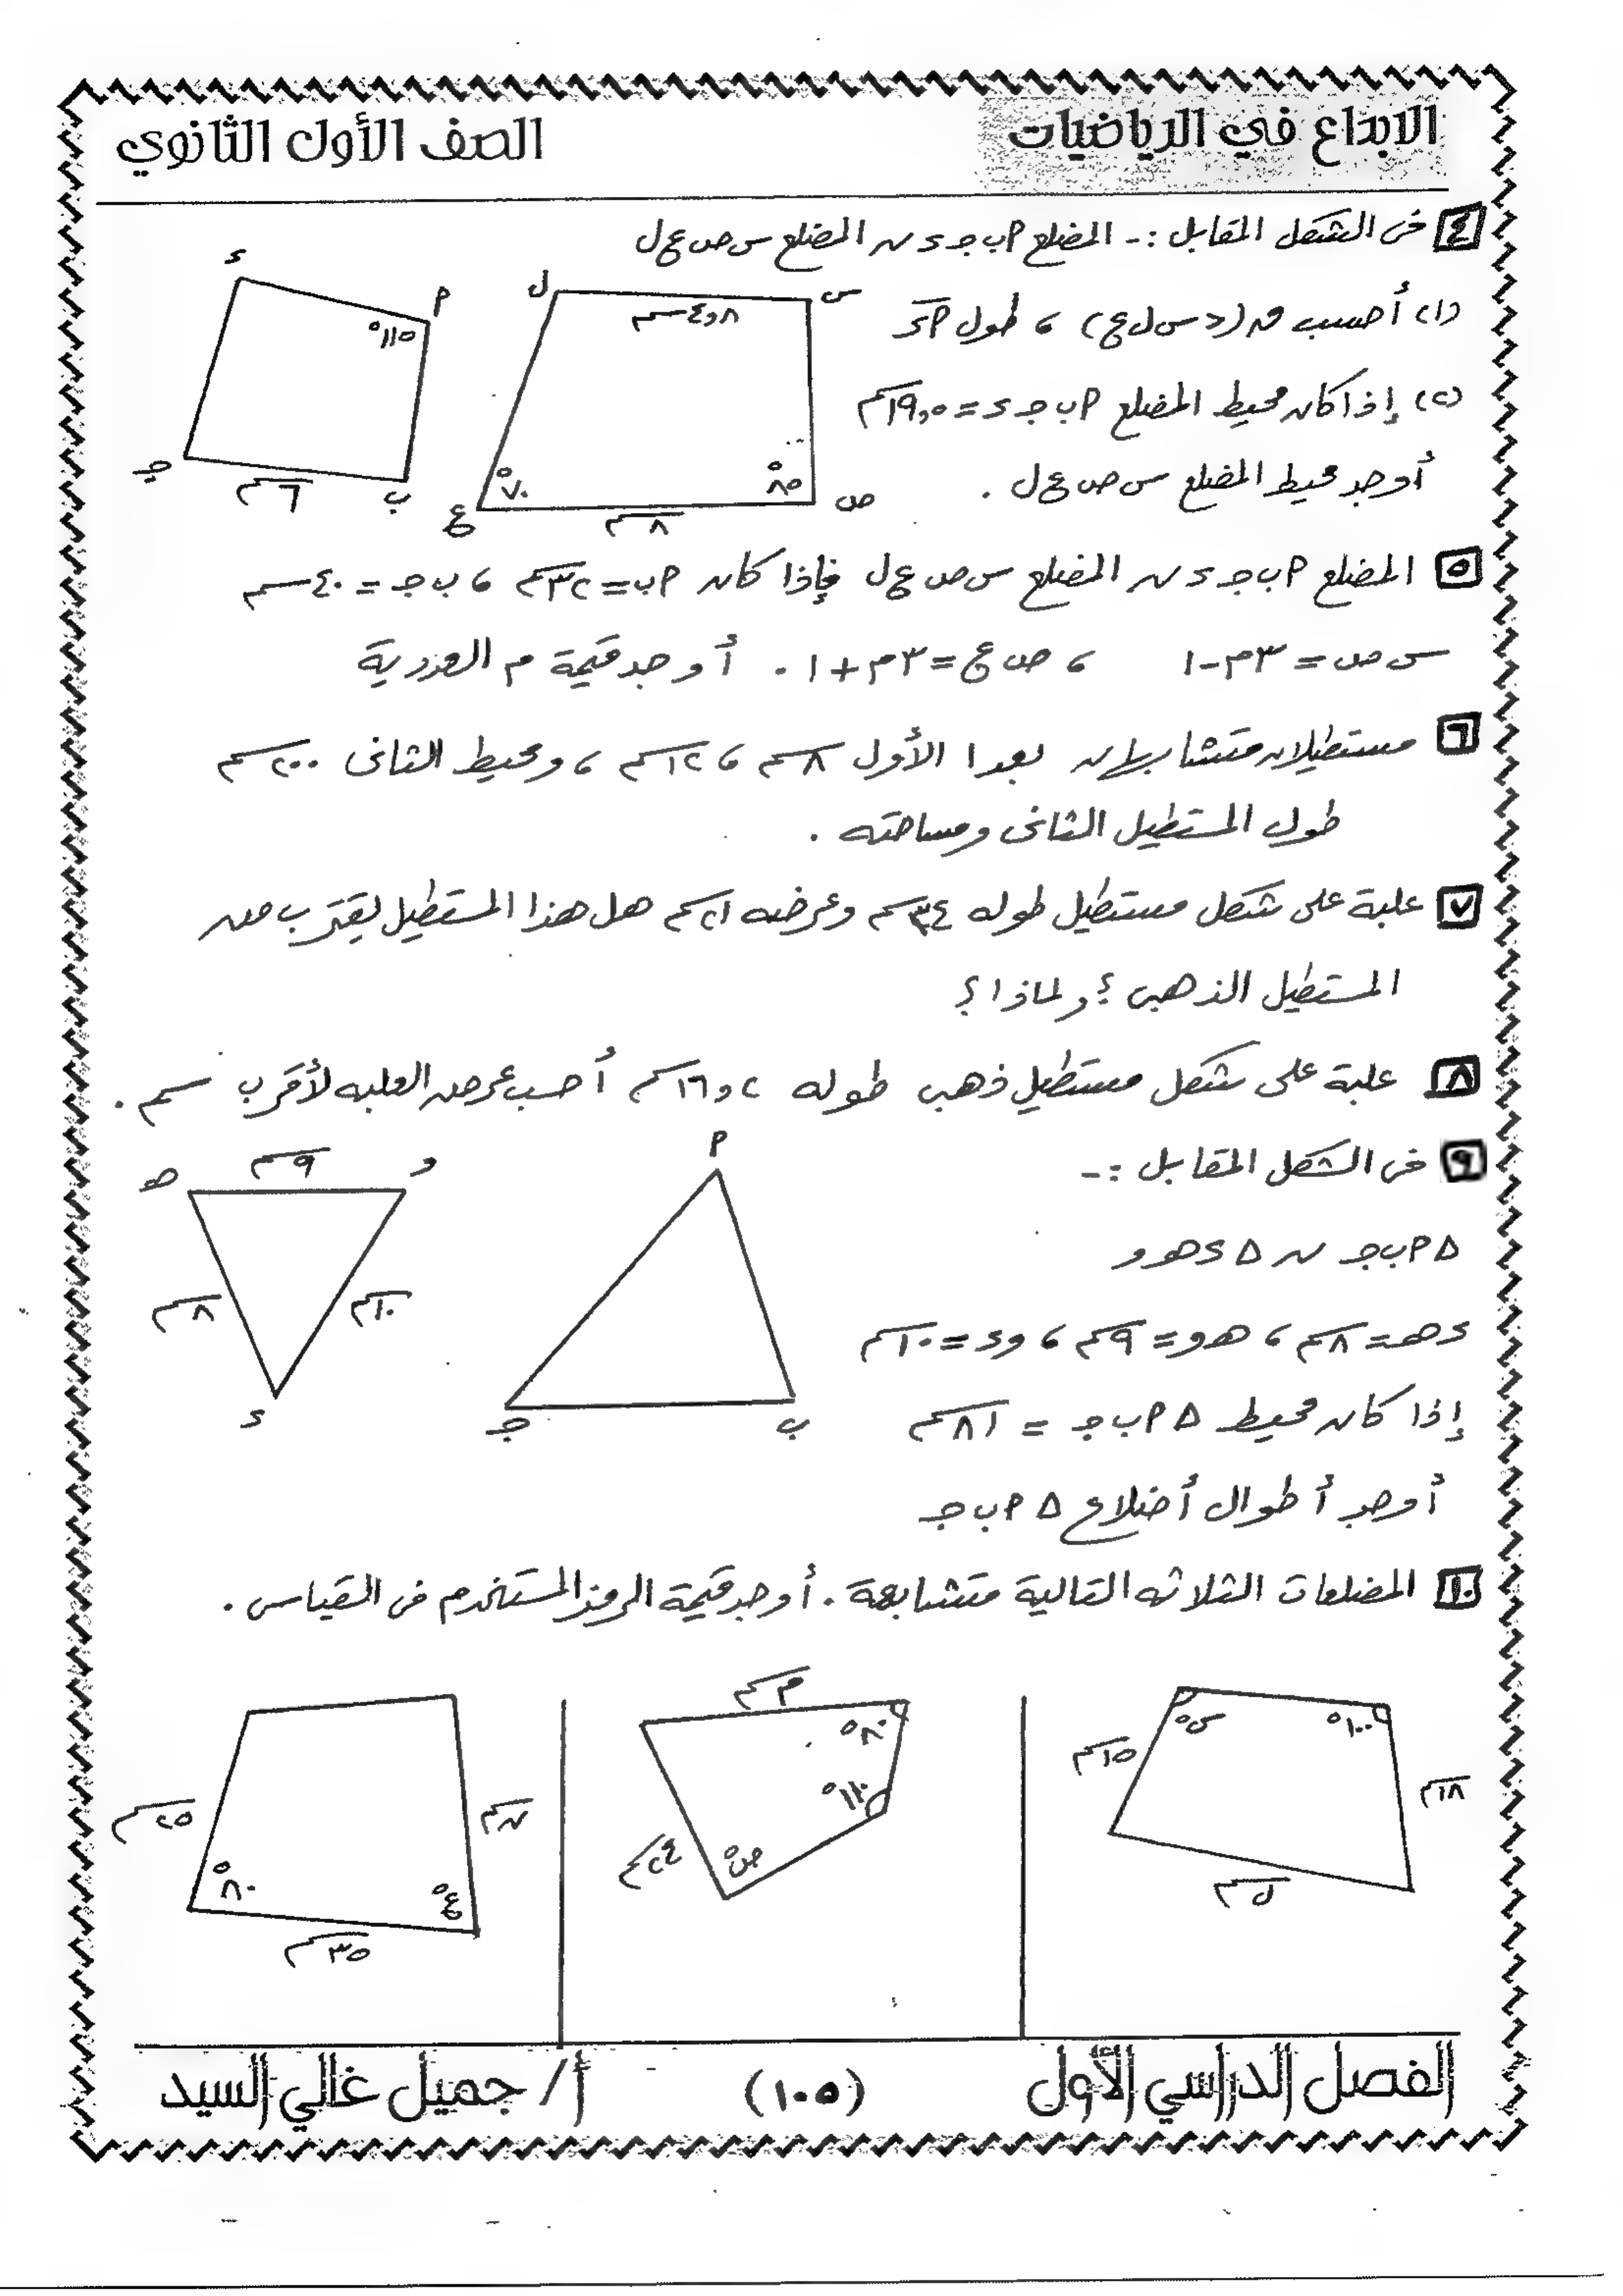 الابداع في الرياضيات
الصف الأول الثانوي
٤ فى الشكل المقابل :- المضلع P ب جـ ء ~ المضلع س ص ع ل
(١) أحسب ق (د س ل ع) ، طول P ء
(٢) إذا كان محيط المضلع P ب جـ ء = ١٩,٥ سم
أوجد محيط المضلع س ص ع ل .
ء
P
١١٥°
جـ
ب
٦ سم
ل
س
٤,٨ سم
٧٠°
٨٥°
ع
ص
٨ سم
٥ المضلع P ب جـ ء ~ المضلع س ص ع ل فإذا كان P ب = ٣٢ سم ، ب جـ = ٤٠ سم
س ص = ٣م - ١ ، ص ع = ٣م + ١ . أوجد قيمة م العددية
٦ مستطيلان متشابهان بعدا الأول ٨ سم ، ١٢ سم ، ومحيط الثانى ٢٠٠ سم
طول المستطيل الثانى ومساحته .
٧ علبة على شكل مستطيل طوله ٣٤ سم وعرضه ٢١ سم هل هذا المستطيل يقترب من
المستطيل الذهبى ؟ ولماذا ؟
٨ علبة على شكل مستطيل ذهبى طوله ١٦,٢ سم أحسب عرض العلبه لأقرب سم .
٩ فى الشكل المقابل :-
Δ P ب جـ ~ Δ ء هـ و
ء هـ = ٨ سم ، هـ و = ٩ سم ، و ء = ١٠ سم
إذا كان محيط Δ P ب جـ = ٨١ سم
أوجد أطوال أضلاع Δ P ب جـ
هـ
٩ سم
و
٨ سم
١٠ سم
ء
P
جـ
ب
١٠ المضلعات الثلاثه التالية متشابهة . أوجد قيمة الرمز المستخدم فى القياس .
س°
١٠٠°
١٥ سم
١٨ سم
ل سم
م سم
٨٠°
١١٠°
٢٤ سم
ص°
٢٥ سم
ن سم
٨٠°
ع°
٣٥ سم
الفصل الدراسي الأول
(١٠٥)
أ/ جميل غالي السيد